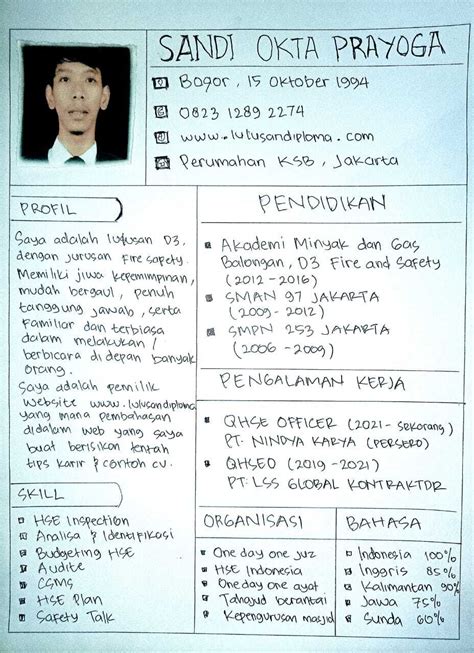 SANDI OKTA PRAYOGA
Bogor, 15 Oktober 1994
0823 1289 2274
www.lulusandiploma.com
Perumahan KSB, Jakarta
PROFIL
Saya adalah lulusan D3,
dengan jurusan Fire safety.
Memiliki jiwa kepemimpinan,
mudah bergaul, penuh
tanggung jawab, serta
Familiar dan terbiasa
dalam melakukan /
berbicara di depan banyak
orang.
Saya adalah pemilik
website www.lulusandiploma
yang mana pembahasan
didalam web yang saya
buat berisikan tentah
tips karir & contoh cv.
SKILL
HSE Inspection
Analisa & Identifikasi
Budgeting HSE
Audite
CSMS
HSE Plan
Safety Talk
PENDIDIKAN
Akademi Minyak dan Gas
Balongan, D3 Fire and Safety
(2012 - 2016)
SMAN 97 JAKARTA
(2009 - 2012)
SMPN 253 JAKARTA
(2006 - 2009)
PENGALAMAN KERJA
QHSE OFFICER (2021 - sekarang)
PT. NINDYA KARYA (PERSERO)
QHSEO (2019 - 2021)
PT. LSS GLOBAL KONTRAKTOR
ORGANISASI
One day one juz
HSE Indonesia
One day one ayat
Tahajud berantai
Kepengurusan masjid
BAHASA
Indonesia 100%
Inggris 85%
Kalimantan 90%
Jawa 75%
Sunda 60%